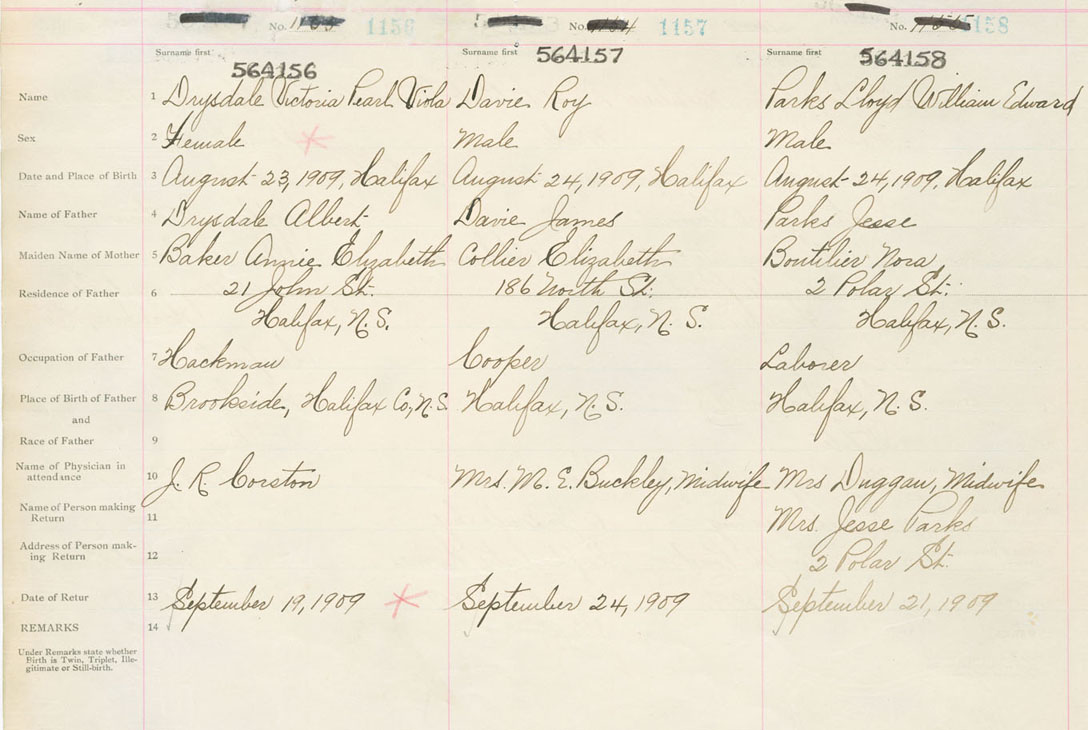 No. 1156
No. 1157
No. 1158
Surname first
Surname first
Surname first
564156
564157
564158
Name 1 Drysdale Victoria Pearl Viola Davie Roy Parks Lloyd William Edward
Sex 2 Female Male Male
Date and Place of Birth 3 August 23, 1909, Halifax August 24, 1909, Halifax August 24, 1909, Halifax
Name of Father 4 Drysdale Albert Davie James Parks Jesse
Maiden Name of Mother 5 Baker Annie Elizabeth Collier Elizabeth Boutilier Nora
Residence of Father 6 21 John St. 186 North St. 2 Polar St.
Halifax, N.S. Halifax, N.S. Halifax, N.S.
Occupation of Father 7 Hackman Cooper Laborer
Place of Birth of Father 8 Brookside, Halifax Co, N.S. Halifax, N.S. Halifax, N.S.
and
Race of Father 9
Name of Physician in
attendance 10 J. R. Corston Mrs. M. E. Buckley, Midwife Mrs Duggan, Midwife
Name of Person making
Return 11 Mrs. Jesse Parks
Address of Person mak-
ing Return 12 2 Polar St.
Date of Retur 13 September 19, 1909 September 24, 1909 September 21, 1909
REMARKS 14
Under Remarks state whether
Birth is Twin, Triplet, Ille-
gitimate or Still-birth.